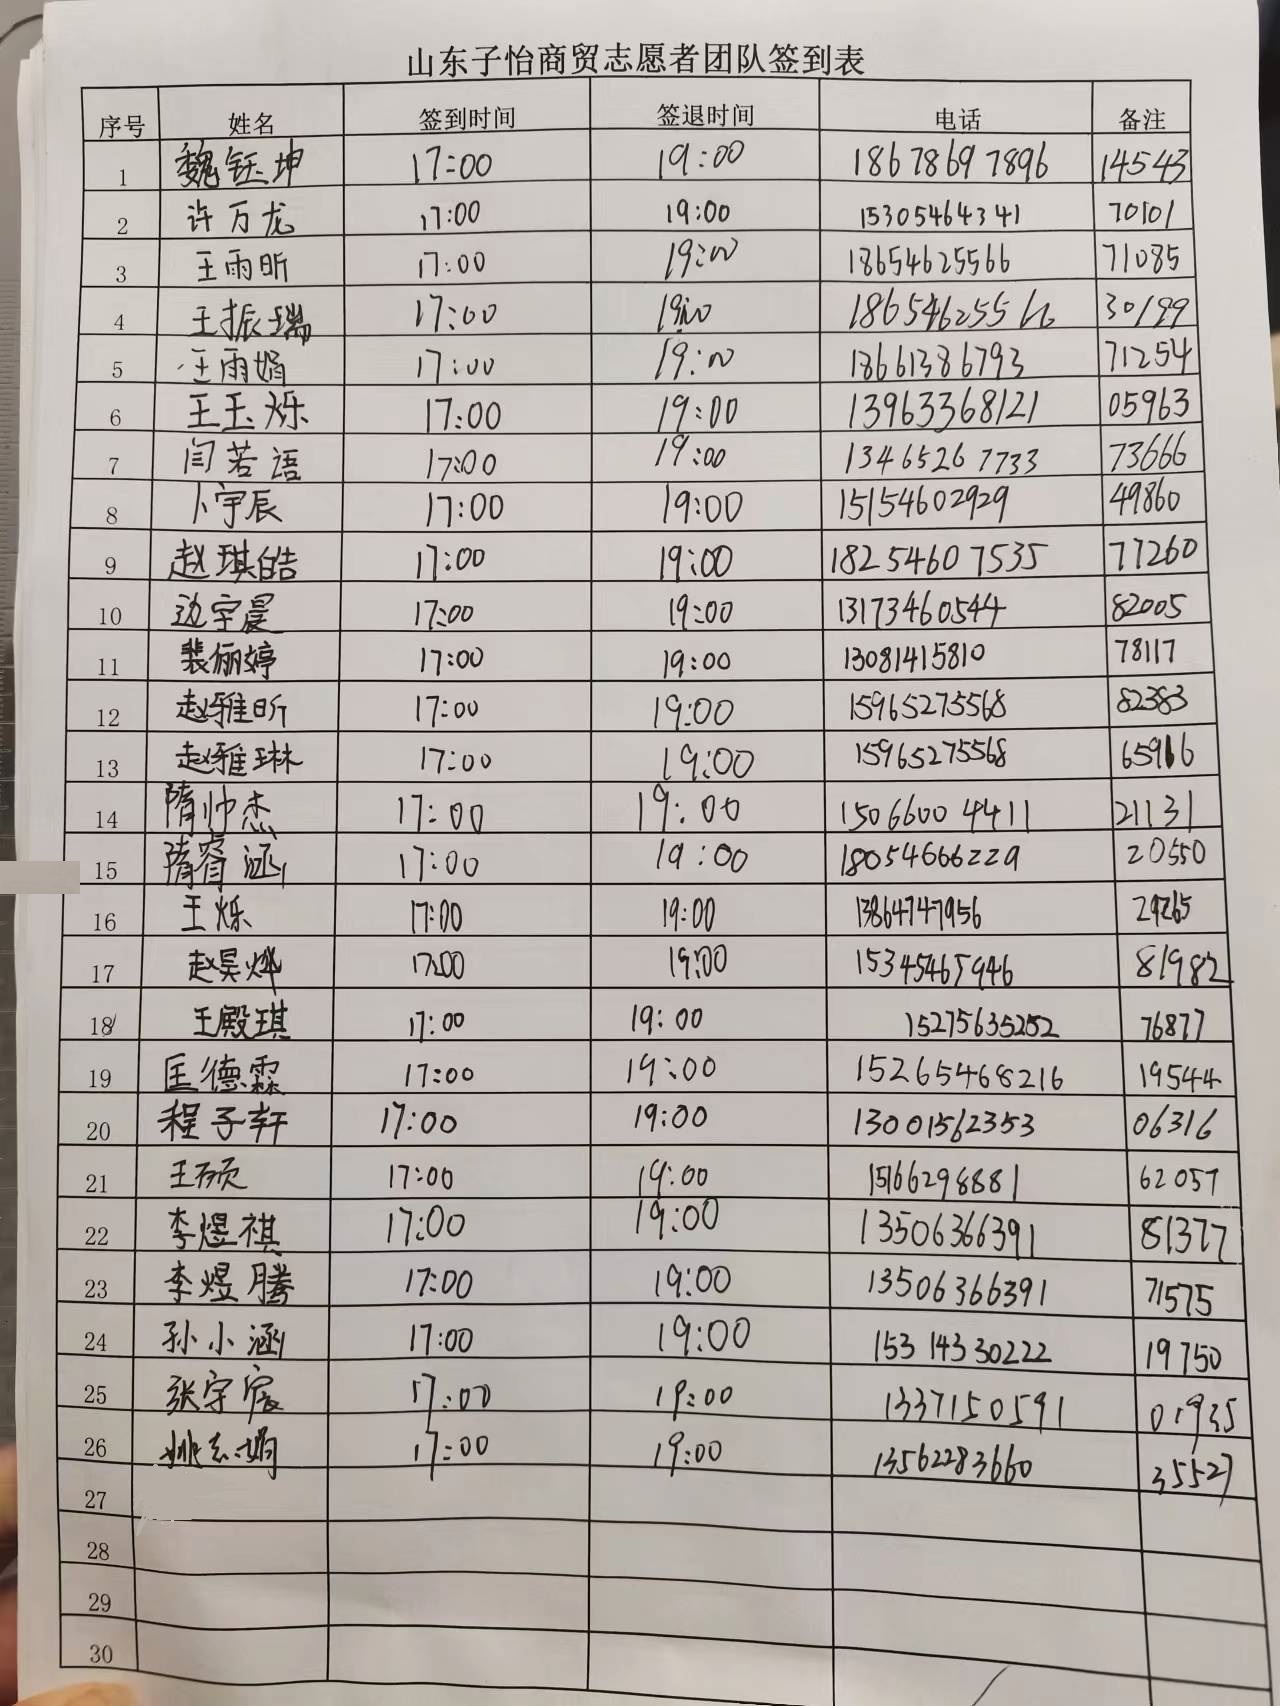 山东子怡商贸志愿者团队签到表
序号 姓名 签到时间 签退时间 电话 备注
1 魏钰坤 17:00 19:00 18678697896 14543
2 许万龙 17:00 19:00 15305464341 70101
3 王雨昕 17:00 19:00 18654625566 71085
4 王振瑞 17:00 19:00 30199
5 王雨娟 17:00 19:00 18661386793 71254
6 王玉烁 17:00 19:00 13963368121 05963
7 闫若语 17:00 19:00 13465267733 73666
8 卜宇辰 17:00 19:00 15154602929 49860
9 赵琪皓 17:00 19:00 18254607535 77260
10 边宇晨 17:00 19:00 13173460544 82005
11 裴俪婷 17:00 19:00 13081415810 78117
12 赵雅昕 17:00 19:00 15965275568 82383
13 赵雅琳 17:00 19:00 15965275568 65916
14 隋帅杰 17:00 19:00 15066004411 21131
15 隋睿涵 17:00 19:00 18054666229 20550
16 王烁 17:00 19:00 13864747956 29265
17 赵昊烨 17:00 19:00 15345465946 81982
18 王殿琪 17:00 19:00 15275635252 76877
19 匡德霖 17:00 19:00 15265468216 19544
20 程子轩 17:00 19:00 13001562353 06316
21 王硕 17:00 19:00 15166298881 62057
22 李煜祺 17:00 19:00 13506366391 81377
23 李煜腾 17:00 19:00 13506366391 71575
24 孙小涵 17:00 19:00 15314330222 19750
25 张宇宸 17:00 19:00 13371150591 01935
26 姚志娟 17:00 19:00 13562283660 35527
27
28
29
30